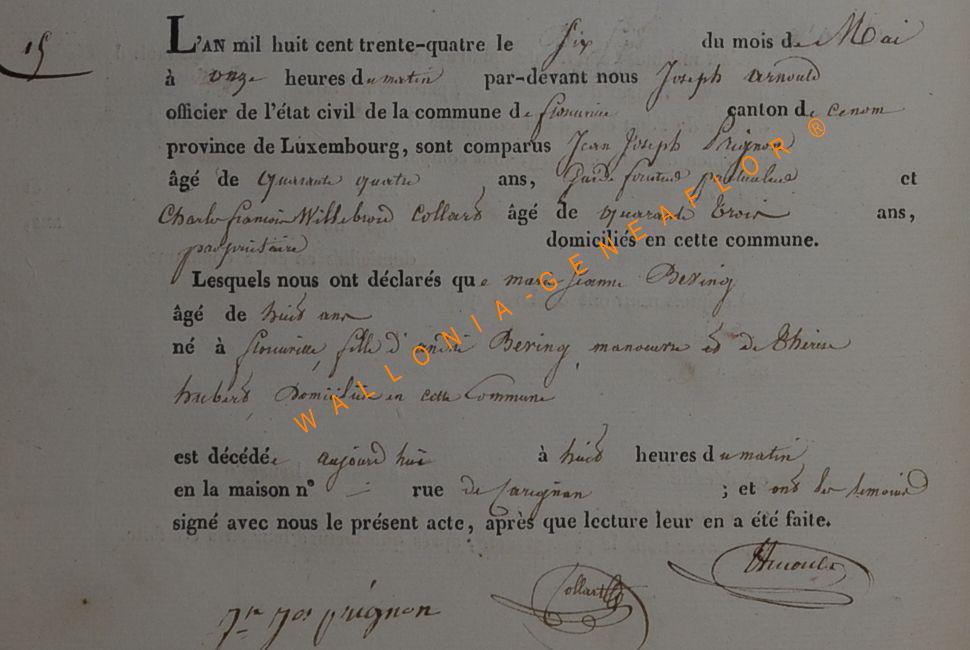 15
L'AN mil huit cent trente-quatre le Six du mois de Mai
à onze heures du matin par-devant nous Joseph Arnould
officier de l'état civil de la commune de florenville canton de
province de Luxembourg, sont comparus Jean Joseph Prignon
âgé de Quarante quatre ans, garde forestier particulier et
Charles françois Willebrord Collard âgé de quarante trois ans,
propriétaire domiciliés en cette commune.
Lesquels nous ont déclarés que marie jeanne Bering
âgé de huit ans
né à florenville, fille d'andré Bering, manoeuvre et de Thérèse
hubert Domiciliée en cette Commune
est décédée aujourd hui à huit heures du matin
en la maison nº — rue de Carignan ; et ont les temoins
signé avec nous le présent acte, après que lecture leur en a été faite.
Jn Jos prignon Collard Arnould
WALLONIA-GENEAFLOR ®